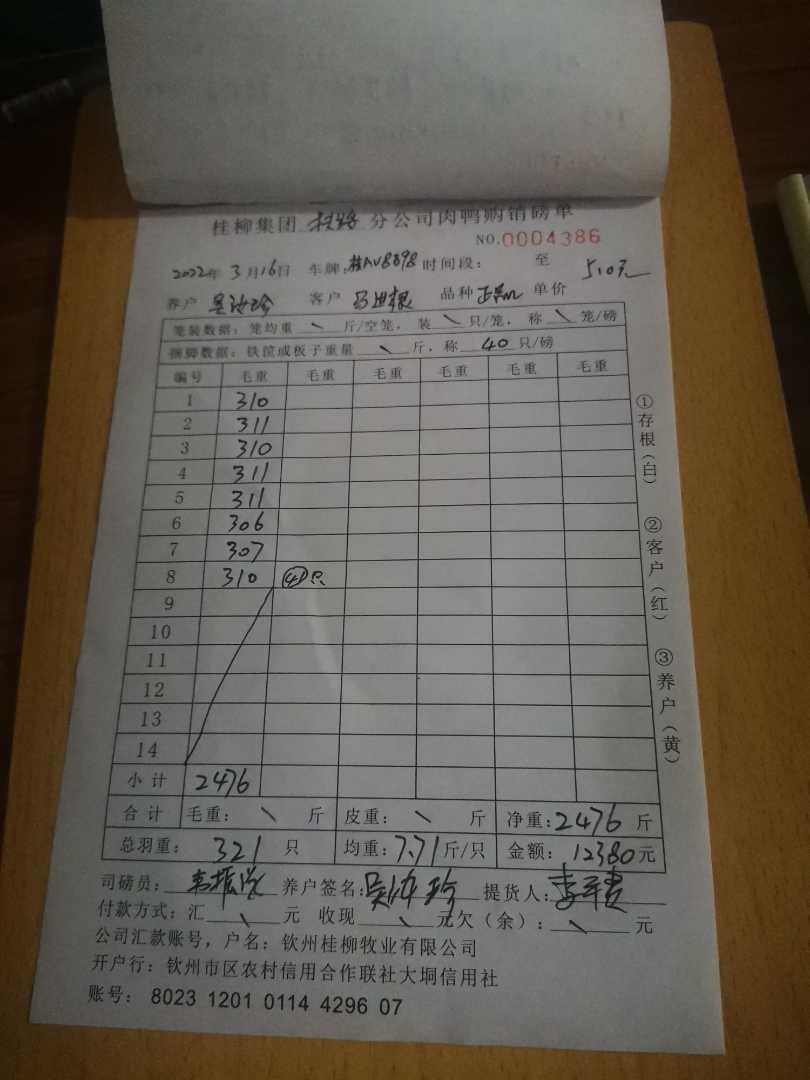 桂柳集团 分公司肉鸭购销磅单
NO.0004386
2022年 3月16日 车牌:桂AV8898 时间段: 至 5.10元
养户 客户 品种 单价
笼装数据: 笼均重 \ 斤/空笼, 装 \ 只/笼, 称 \ 笼/磅
捆脚数据: 铁筐或板子重量 \ 斤, 称 40 只/磅
编号 毛重 毛重 毛重 毛重 毛重 毛重
1 310
2 311
3 310
4 311
5 311
6 306
7 307
8 310 41只
9
10
11
12
13
14
小计 2476
合计 毛重: \ 斤 皮重: \ 斤 净重:2476 斤
总羽重: 321 只 均重:7.71斤/只 金额: 12380元
司磅员: 养户签名: 提货人:
付款方式: 汇 \ 元 收现 \ 元欠(余): \ 元
公司汇款账号, 户名: 钦州桂柳牧业有限公司
开户行: 钦州市区农村信用合作联社大垌信用社
账号: 8023 1201 0114 4296 07
①存根(白) ②客户(红) ③养户(黄)